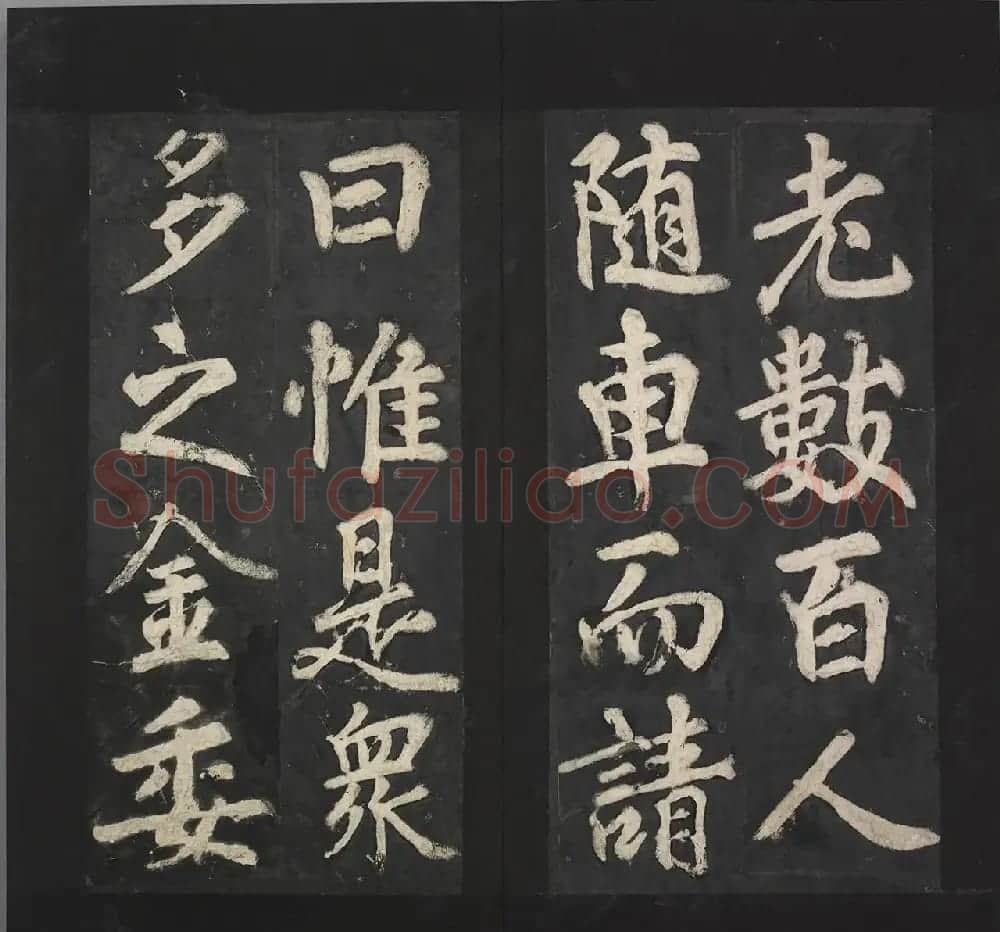 老數百人
随車而請
曰惟是衆
多之金委
Shufaziliao.COM